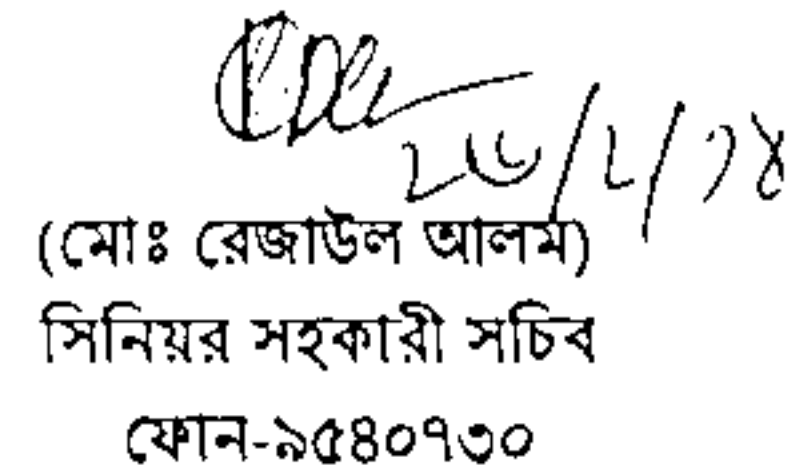 ২৬/২/১৪
(মোঃ রেজাউল আলম)
সিনিয়র সহকারী সচিব
ফোন-৯৫৪০৭৩০